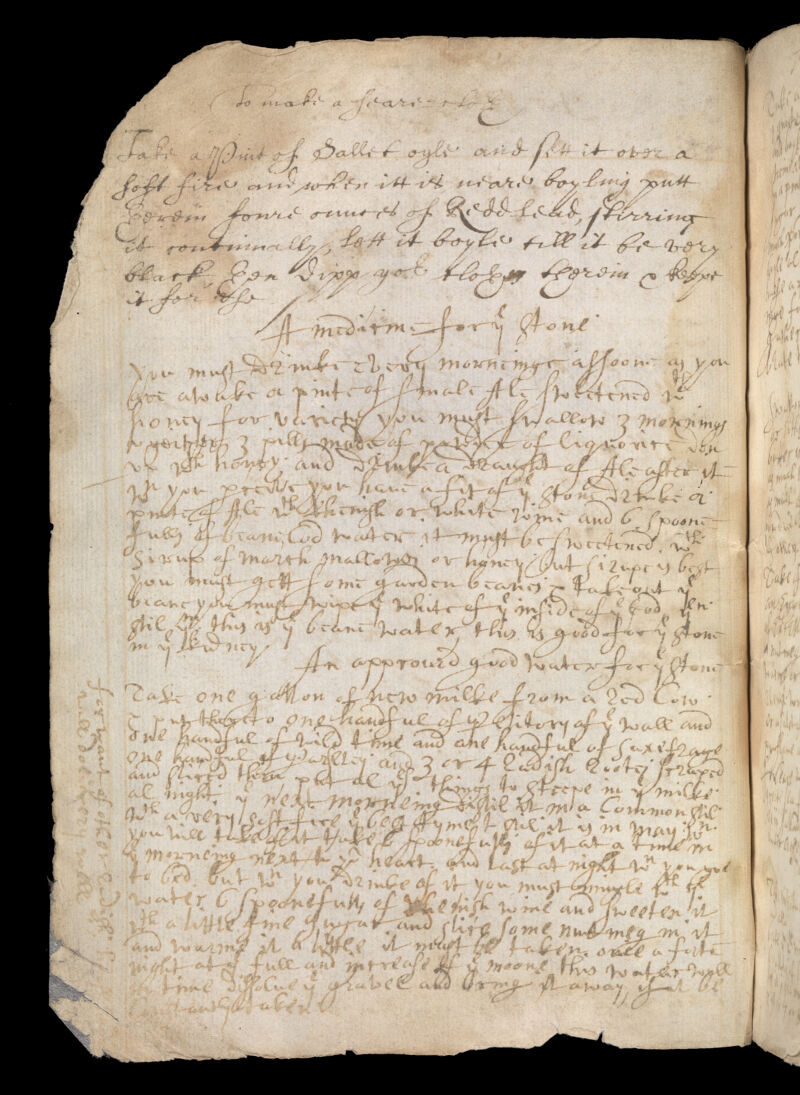 to make a seare cloth
Take a Pint of Sallet oyle and sett it over a
soft fire and when itt is neare boyling putt
therein foure ounces of Redd lead, stirring
it continually, lett it boyle till it be very
black, then dipp yor cloth therein & keepe
it for use
A medicine for ye stone
You must Drinke every morninge assoone as you
bee awake a pinte of smale Ale sweetened wth
honey for variety you must swallow 3 mornings
together 3 pills made of powder of liquorice
wth honey and Drinke a Draught of Ale after it
wn you perceive you have a fit of ye stone Drinke a
pinte of Ale wth Rhenish or white wine and 6 spoone
fulls of beane Cod water it must be sweetened wth
Sirup of march mallowes or honey but sirupe is best
you must gett some garden beanes & take out ye
beane you must wipe ye white of ye inside of ye Cod then
stil this is ye beane water, this is good for ye stone
in ye Kidney
An approved good water for ye stone
Take one gallon of new milke from a red Cow
put thereto one handful of Pelitory of ye wall and
one handful of wild time and one handful of Saxefrage
one handful of Parsley and 3 or 4 Radish Rootes scraped
and sliced then put al ye things to steepe in ye milke
al night, ye next morneing distil it in a Common stil
wth a very soft fire ye best tyme to stil it is in may wn
you will take of it take 6 spoonefulls of it at a time in
ye morneing next to yr heart and last at night wn you goe
to bed but wn you Drinke of it you must mingle wth ye
water 6 spoonefulls of Rhenish wine and sweeten it
wth a little fine sugar and slice some nutmeg in it
and warme it a little it must be taken
night at ye full and increase of ye moone this water will
in time disolve ye gravel and bring it away if it be
constantly taken
for want of
will doe very well